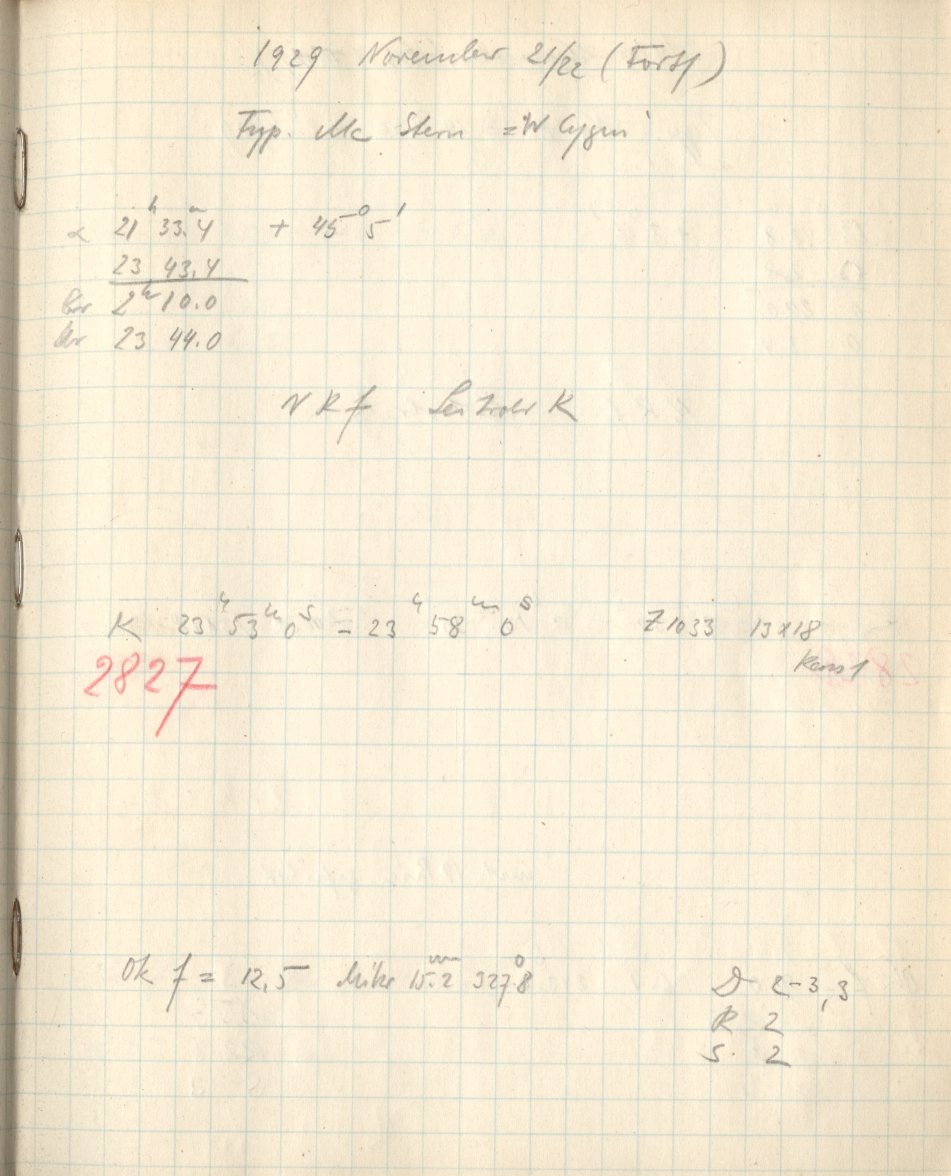 1929 November 21/22 (Forts)
Typ. Mc Stern = W Cygni
α 21ʰ 33.ᵐ4 + 45° 5'
23 43.4
2ʰ 10.0
Uhr 23 44.0
N R f K
K 23ʰ 53ᵐ 0ˢ - 23ʰ 58ᵐ 0ˢ Z 1033 13x18
2827
Ok f = 12,5 Mikr 15.ᵐᵐ2 327.°8
D 2-3, 3
R 2
S. 2